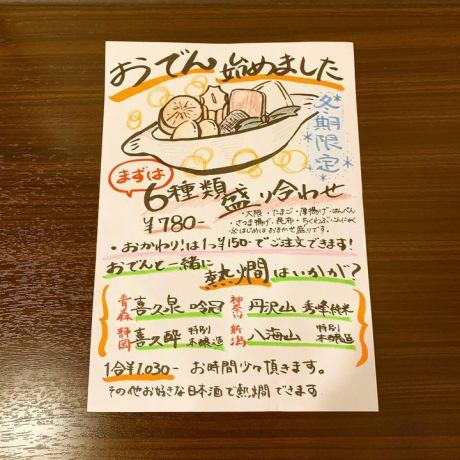 おでん始めました
冬期限定
まずは
6種類盛り合わせ
¥780-
・大根・たまご・厚揚げ・はんぺん
・さつま揚げ・昆布・ちくわぶ・こんにゃく
※はじめはおまかせ盛りです。
・おかわり!は1つ¥150-でご注文できます!
おでんと一緒に
熱燗はいかが?
青森 喜久泉 吟冠
神奈川 丹沢山 秀峰純米
静岡 喜久醉 特別本醸造
新潟 八海山 特別本醸造
1合¥1.030- お時間少々頂きます。
その他お好きな日本酒で熱燗できます